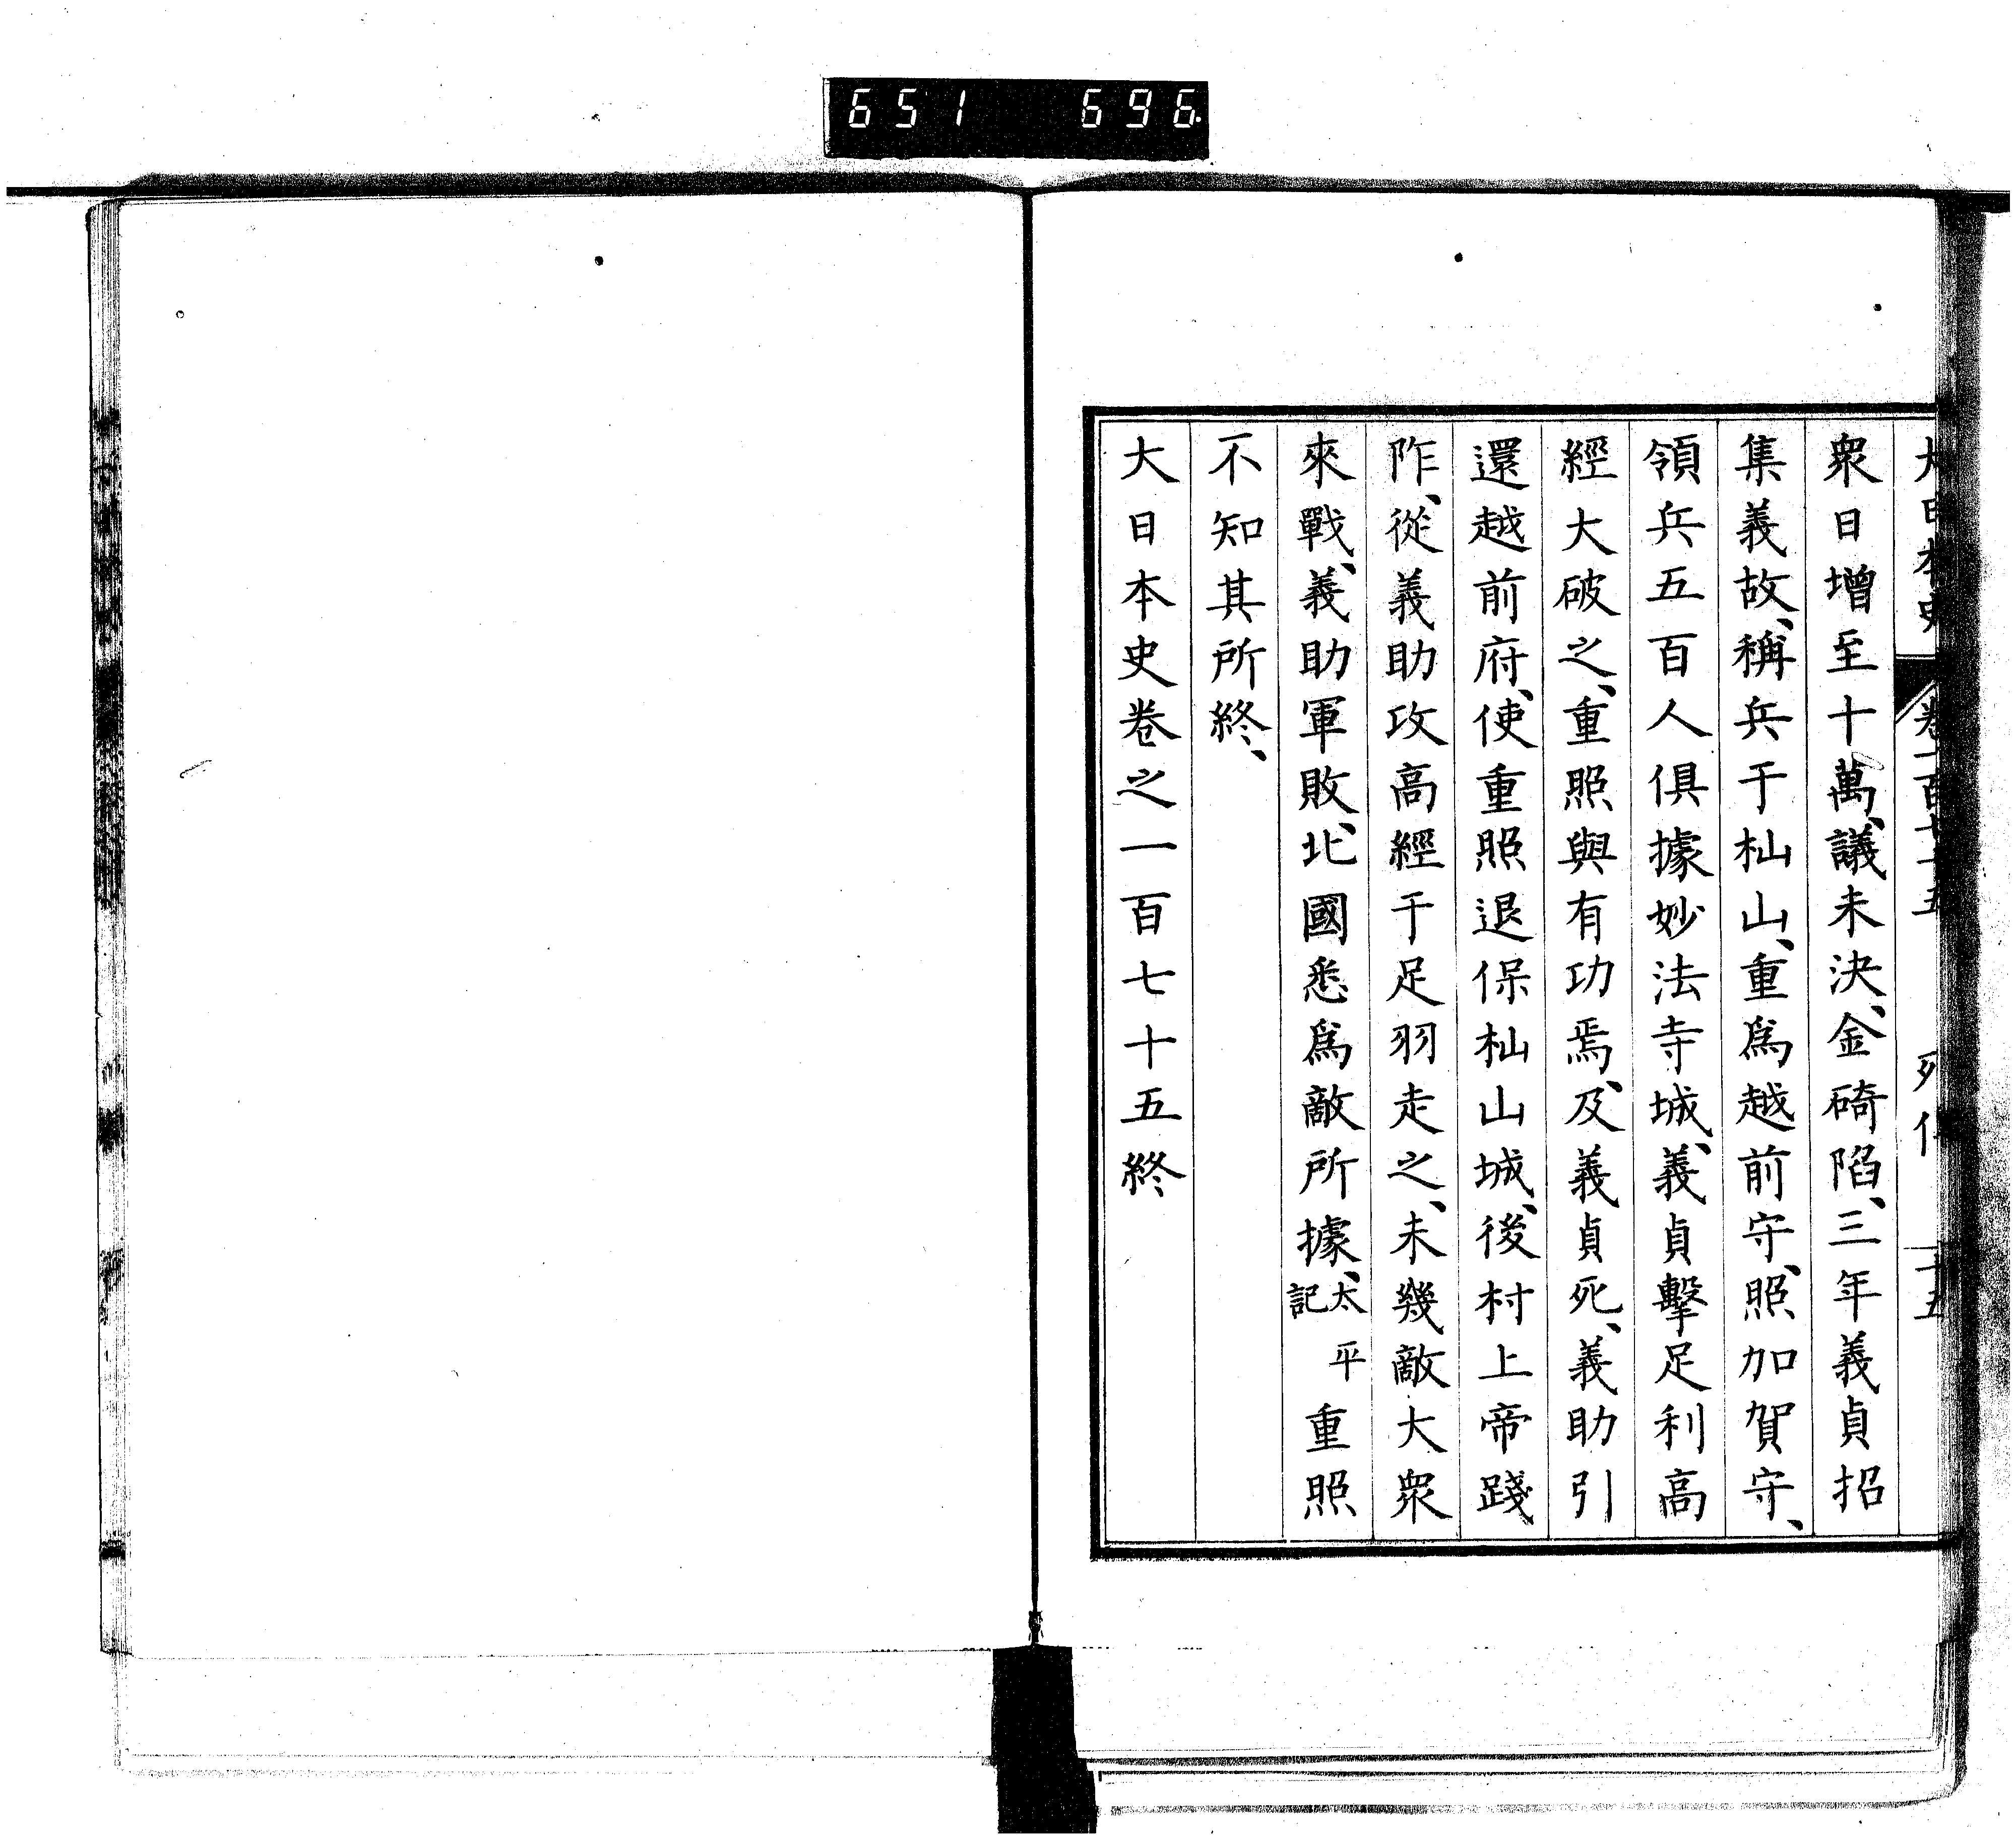 651 696
大日本史 卷一百七十五 列傳 十五
衆日增至十萬、議未決、金碕陷、三年義貞招
集義故、稱兵于杣山、重爲越前守、照加賀守、
領兵五百人俱據妙法寺城、義貞擊足利高
經大破之、重照與有功焉、及義貞死、義助引
還越前府、使重照退保杣山城、後村上帝踐
阼、從義助攻高經于足羽走之、未幾敵大衆
來戰、義助軍敗、北國悉爲敵所據、太平記 重照
不知其所終、
大日本史卷之一百七十五終